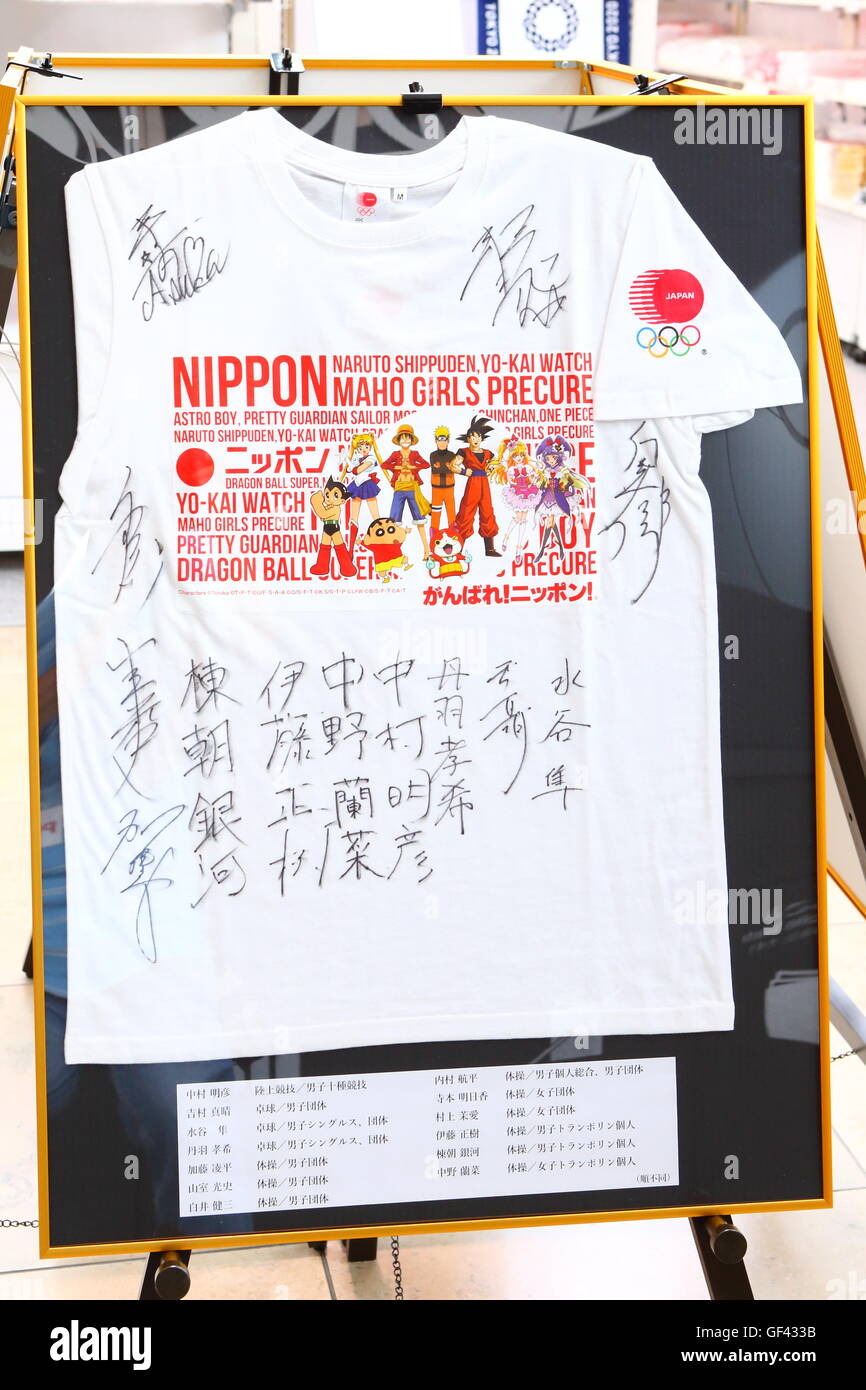 TOKYO 2020
M
JAPAN
NIPPON
NARUTO SHIPPUDEN,YO-KAI WATCH
MAHO GIRLS PRECURE
ASTRO BOY, PRETTY GUARDIAN SAILOR
CHINCHAN,ONE PIECE
NARUTO SHIPPUDEN,YO-KAI WATCH
GIRLS PRECURE
ニッポン
DRAGON BALL SUPER,
YO-KAI WATCH
MAHO GIRLS PRECURE
PRETTY GUARDIAN
DRAGON BALL SUPER
PRECURE
がんばれ!ニッポン!
Asuka
棟朝銀河
伊藤正樹
中野蘭菜
中村明彦
丹羽孝希
水谷隼
中村 明彦 陸上競技／男子十種競技
吉村 真晴 卓球／男子団体
水谷 隼 卓球／男子シングルス、団体
丹羽 孝希 卓球／男子シングルス、団体
加藤 凌平 体操／男子団体
山室 光史 体操／男子団体
白井 健三 体操／男子団体
内村 航平 体操／男子個人総合、男子団体
寺本 明日香 体操／女子団体
村上 茉愛 体操／女子団体
伊藤 正樹 体操／男子トランポリン個人
棟朝 銀河 体操／男子トランポリン個人
中野 蘭菜 体操／女子トランポリン個人
(順不同)
alamy
alamy
Image ID: GF433B
www.alamy.com
alamy stock photo
GF433B